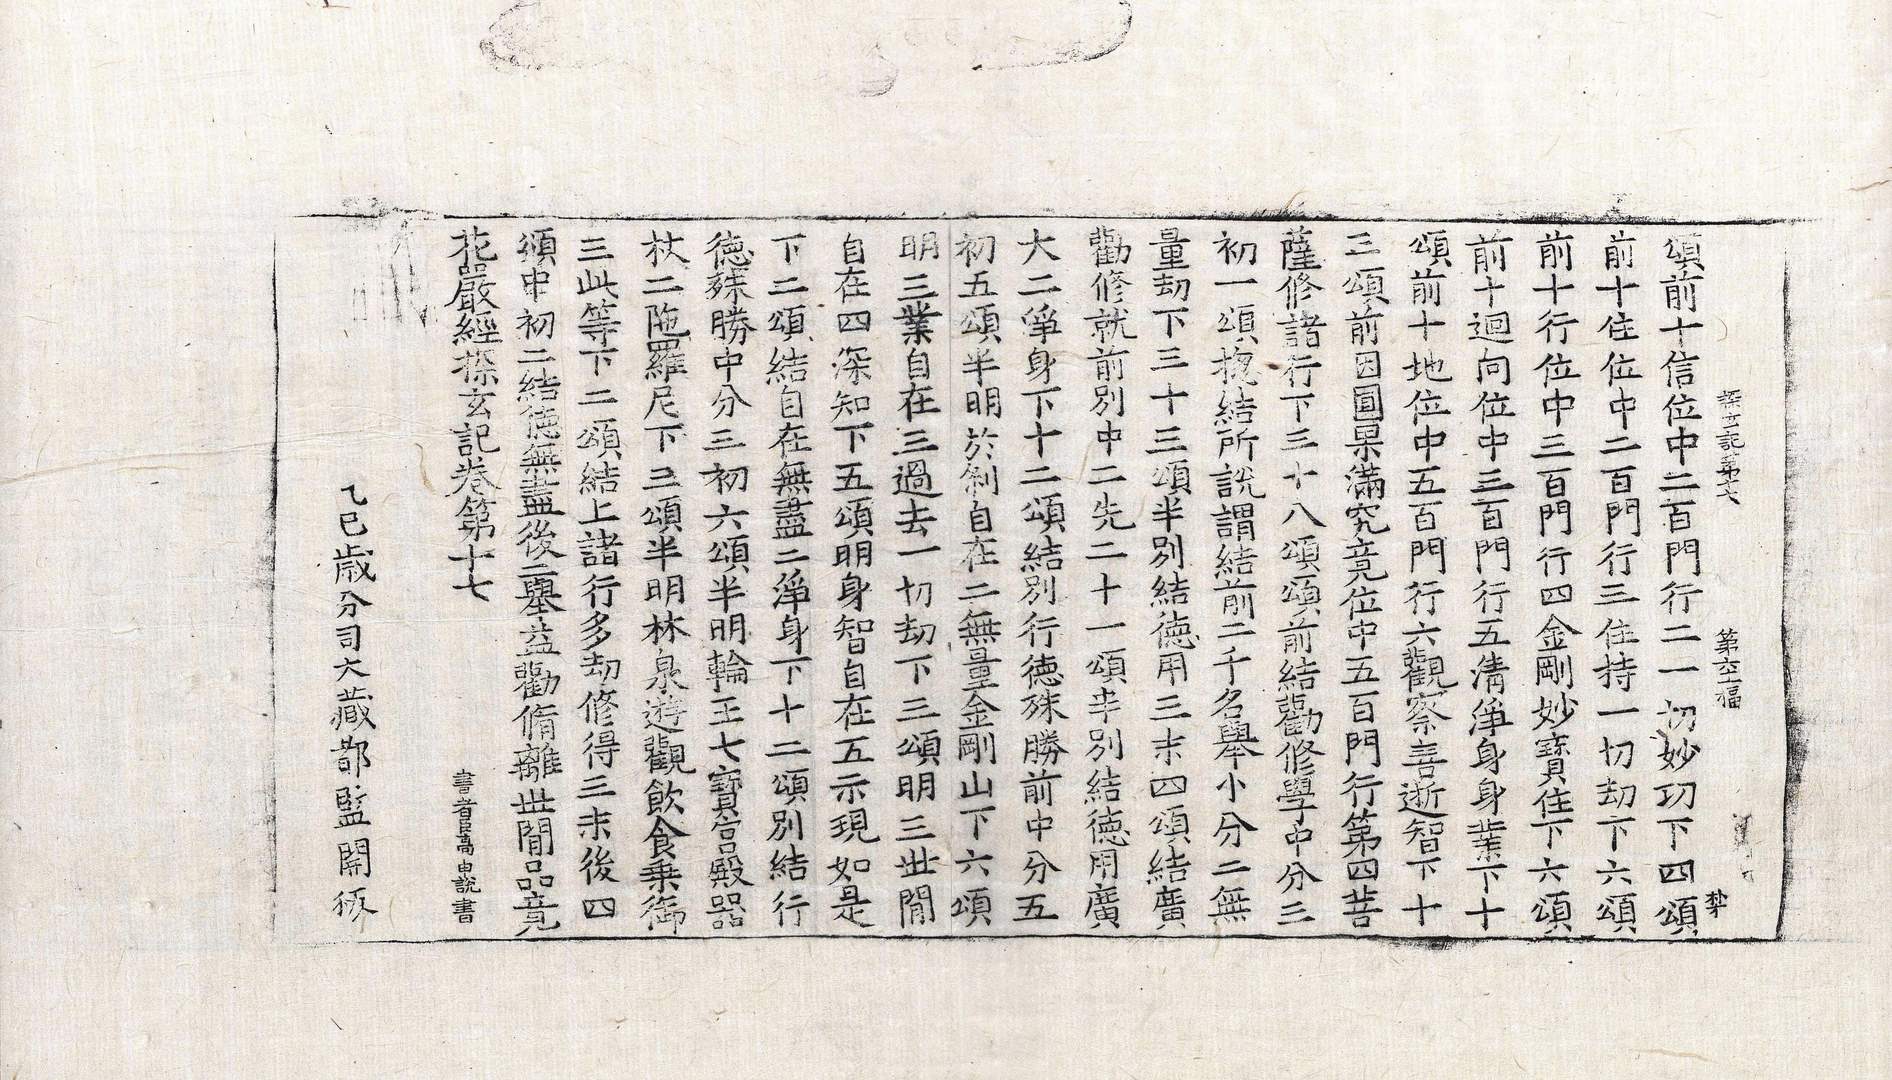 探玄記第十七 第六十二幅 㔟
頌前十信位中二百門行二一切妙功下四頌
前十住位中二百門行三住持一切劫下六頌
前十行位中三百門行四金剛妙寶住下六頌
前十迴向位中三百門行五淸淨身身業下十
頌前十地位中五百門行六觀察善逝智下十
三頌前因圓果滿究竟位中五百門行第四菩
薩修諸行下三十八頌頌前結勸修學中分三
初一頌揔結所說謂結前二千名舉小分二無
量劫下三十三頌半別結德用三末四頌結廣
勸修就前別中二先二十一頌半別結德用廣
大二淨身下十二頌結別行德殊勝前中分五
初五頌半明於刹自在二無量金剛山下六頌
明三業自在三過去一切劫下三頌明三世間
自在四深知下五頌明身智自在五示現如是
下二頌結自在無盡二淨身下十二頌別結行
德殊勝中分三初六頌半明輪王七寶宮殿器
杖二陁羅尼下三頌半明林泉遊觀飮食乗御
三此等下二頌結上諸行多劫修得三末後四
頌中初二結德無盡後二舉益勸脩離世間品竟
花嚴經探玄記卷第十七
書者呂高由說書
乙巳歲分司大藏都監開板